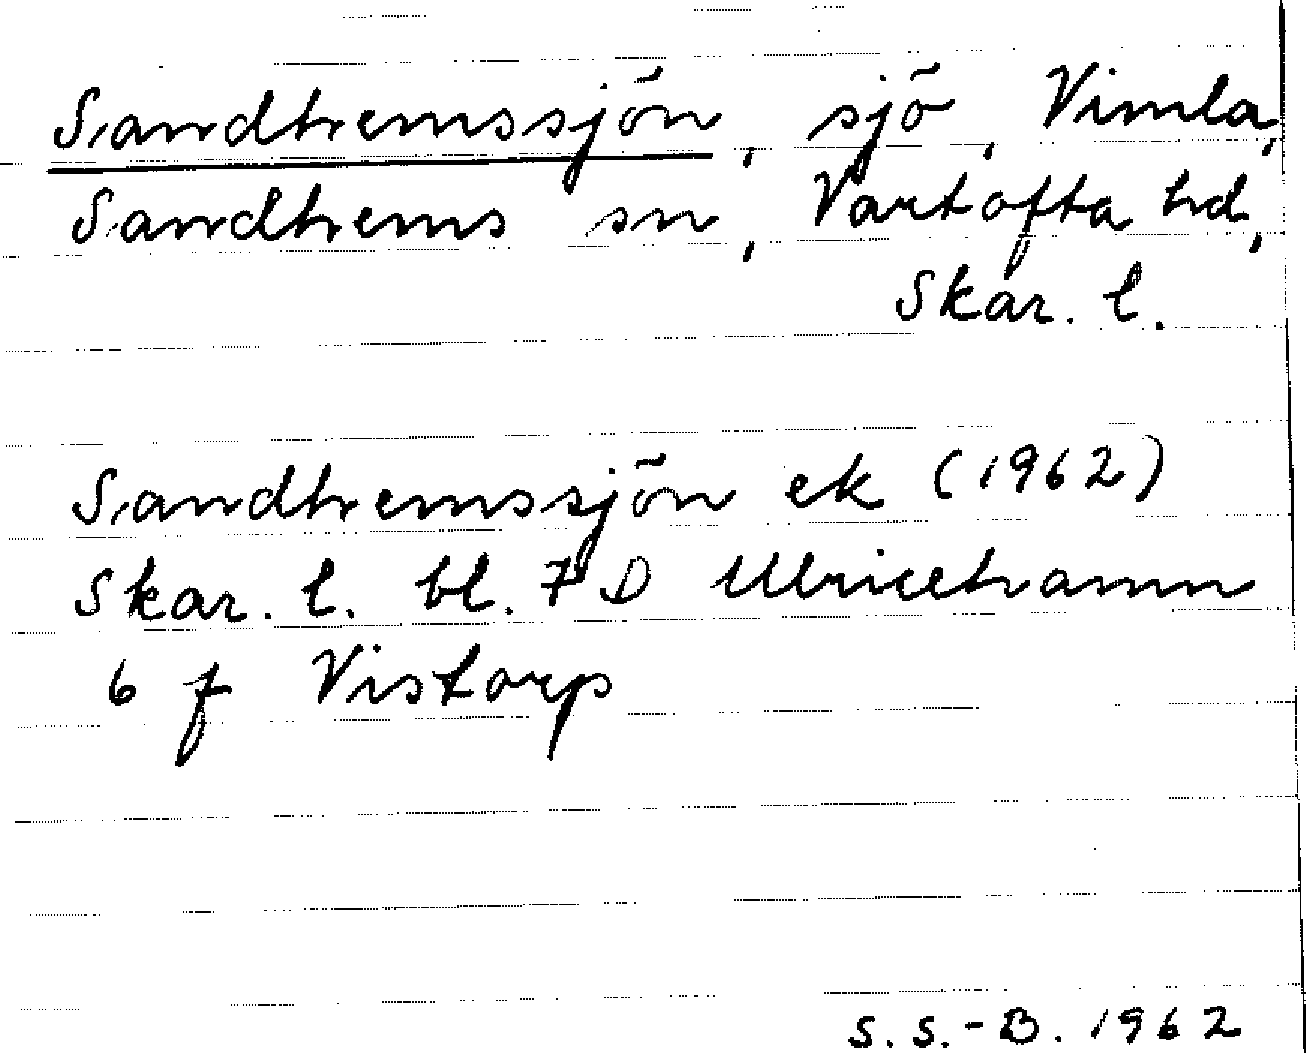 Sandhemssjön, sjö, Vimla,
Sandhems sn, Vartofta hd,
Skar. l.
Sandhemssjön ek (1962)
Skar. l. bl. 7 D Ulricehamn
6 f Vistorp
S. S.-B. 1962